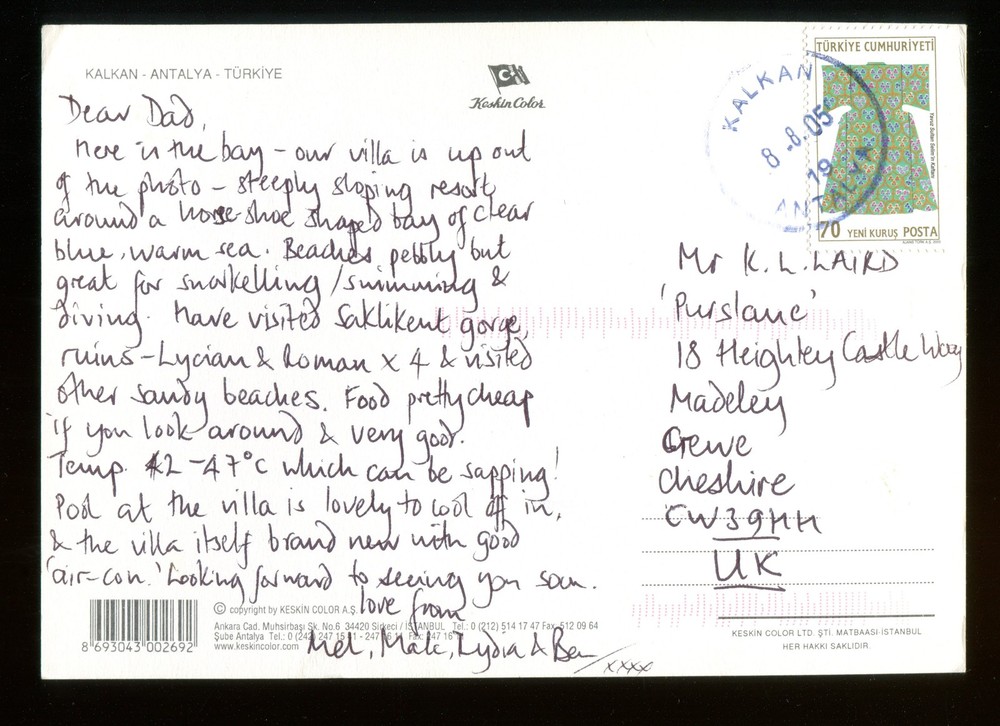 KALKAN - ANTALYA - TÜRKİYE
Keskin Color
Dear Dad,
Here in the bay – our villa is up out
of the photo – steeply sloping resort
around a horse shoe shaped bay of clear
blue, warm sea. Beaches pebbly but
great for snorkelling/swimming &
diving. Have visited Saklikent gorge,
ruins – Lycian & Roman x 4 & visited
other sandy beaches. Food pretty cheap
if you look around & very good.
Temp. 42 – 47°C which can be sapping!
Pool at the villa is lovely to cool off in,
& the villa itself brand new with good
'air-con.' Looking forward to seeing you soon.
love from
Mel, Malc, Lydia & Ben
xxxx
TÜRKİYE CUMHURİYETİ
Yavuz Sultan Selim'in Kaftanı
70 YENİ KURUŞ POSTA
KALKAN
8 -8.05
19
ANTALYA
Mr K. L. LAIRD
'Purslane'
18 Heighley Castle Way
Madeley
Crewe
Cheshire
CW3 9HH
UK
8 693043 002692
© copyright by KESKİN COLOR A.Ş.
Ankara Cad. Muhsirbaşı Sk. No.6 34420 Sirkeci / İSTANBUL Tel.: 0 (212) 514 17 47 Fax: 512 09 64
Şube Antalya Tel.: 0 (242) 247 15 41 - 247 16 11 Fax: 247 16
www.keskincolor.com
KESKİN COLOR LTD. ŞTİ. MATBAASI-İSTANBUL
HER HAKKI SAKLIDIR.